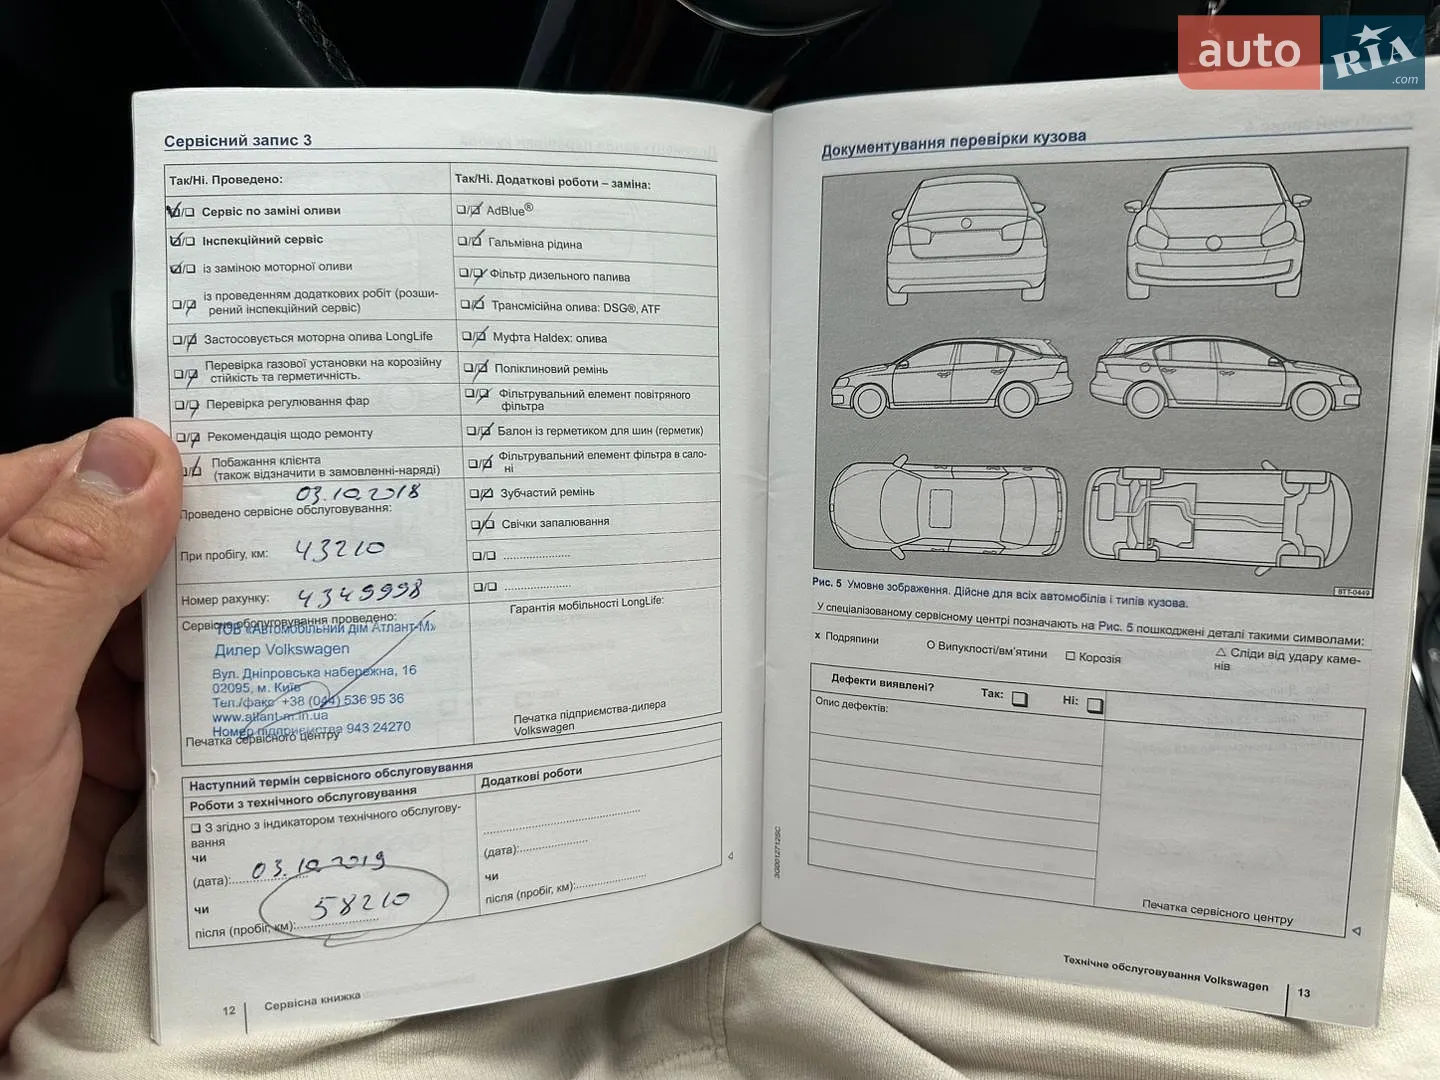 auto RIA .com
Сервісний запис 3
Так/Ні. Проведено:
Сервіс по заміні оливи
Інспекційний сервіс
із заміною моторної оливи
із проведенням додаткових робіт (розши-
рений інспекційний сервіс)
Застосовується моторна олива LongLife
Перевірка газової установки на корозійну
стійкість та герметичність.
Перевірка регулювання фар
Рекомендація щодо ремонту
Побажання клієнта
(також відзначити в замовленні-наряді)
03.10.2018
Проведено сервісне обслуговування:
При пробігу, км: 43210
Номер рахунку: 4349998
Сервісне обслуговування проведено:
ТОВ «Автомобільний дім Атлант-М»
Дилер Volkswagen
Вул. Дніпровська набережна, 16
02095, м. Київ
Тел./факс +38 (044) 536 95 36
www.atlant-m.in.ua
Номер підприємства 943 24270
Печатка сервісного центру
Так/Ні. Додаткові роботи – заміна:
AdBlue®
Гальмівна рідина
Фільтр дизельного палива
Трансмісійна олива: DSG®, ATF
Муфта Haldex: олива
Поліклиновий ремінь
Фільтрувальний елемент повітряного
фільтра
Балон із герметиком для шин (герметик)
Фільтрувальний елемент фільтра в сало-
ні
Зубчастий ремінь
Свічки запалювання
Гарантія мобільності LongLife:
Печатка підприємства-дилера
Volkswagen
Наступний термін сервісного обслуговування
Роботи з технічного обслуговування
З згідно з індикатором технічного обслугову-
вання
чи
(дата): 03.10.2019
чи
після (пробіг, км): 58210
Додаткові роботи
(дата):
чи
після (пробіг, км):
12 Сервісна книжка
Документування перевірки кузова
BTT-0449
Рис. 5 Умовне зображення. Дійсне для всіх автомобілів і типів кузова.
У спеціалізованому сервісному центрі позначають на Рис. 5 пошкоджені деталі такими символами:
x Подряпини
O Випуклості/вм'ятини
□ Корозія
△ Сліди від удару каме-
нів
Дефекти виявлені? Так: Ні:
Опис дефектів:
Печатка сервісного центру
3GD012712BC
Технічне обслуговування Volkswagen 13